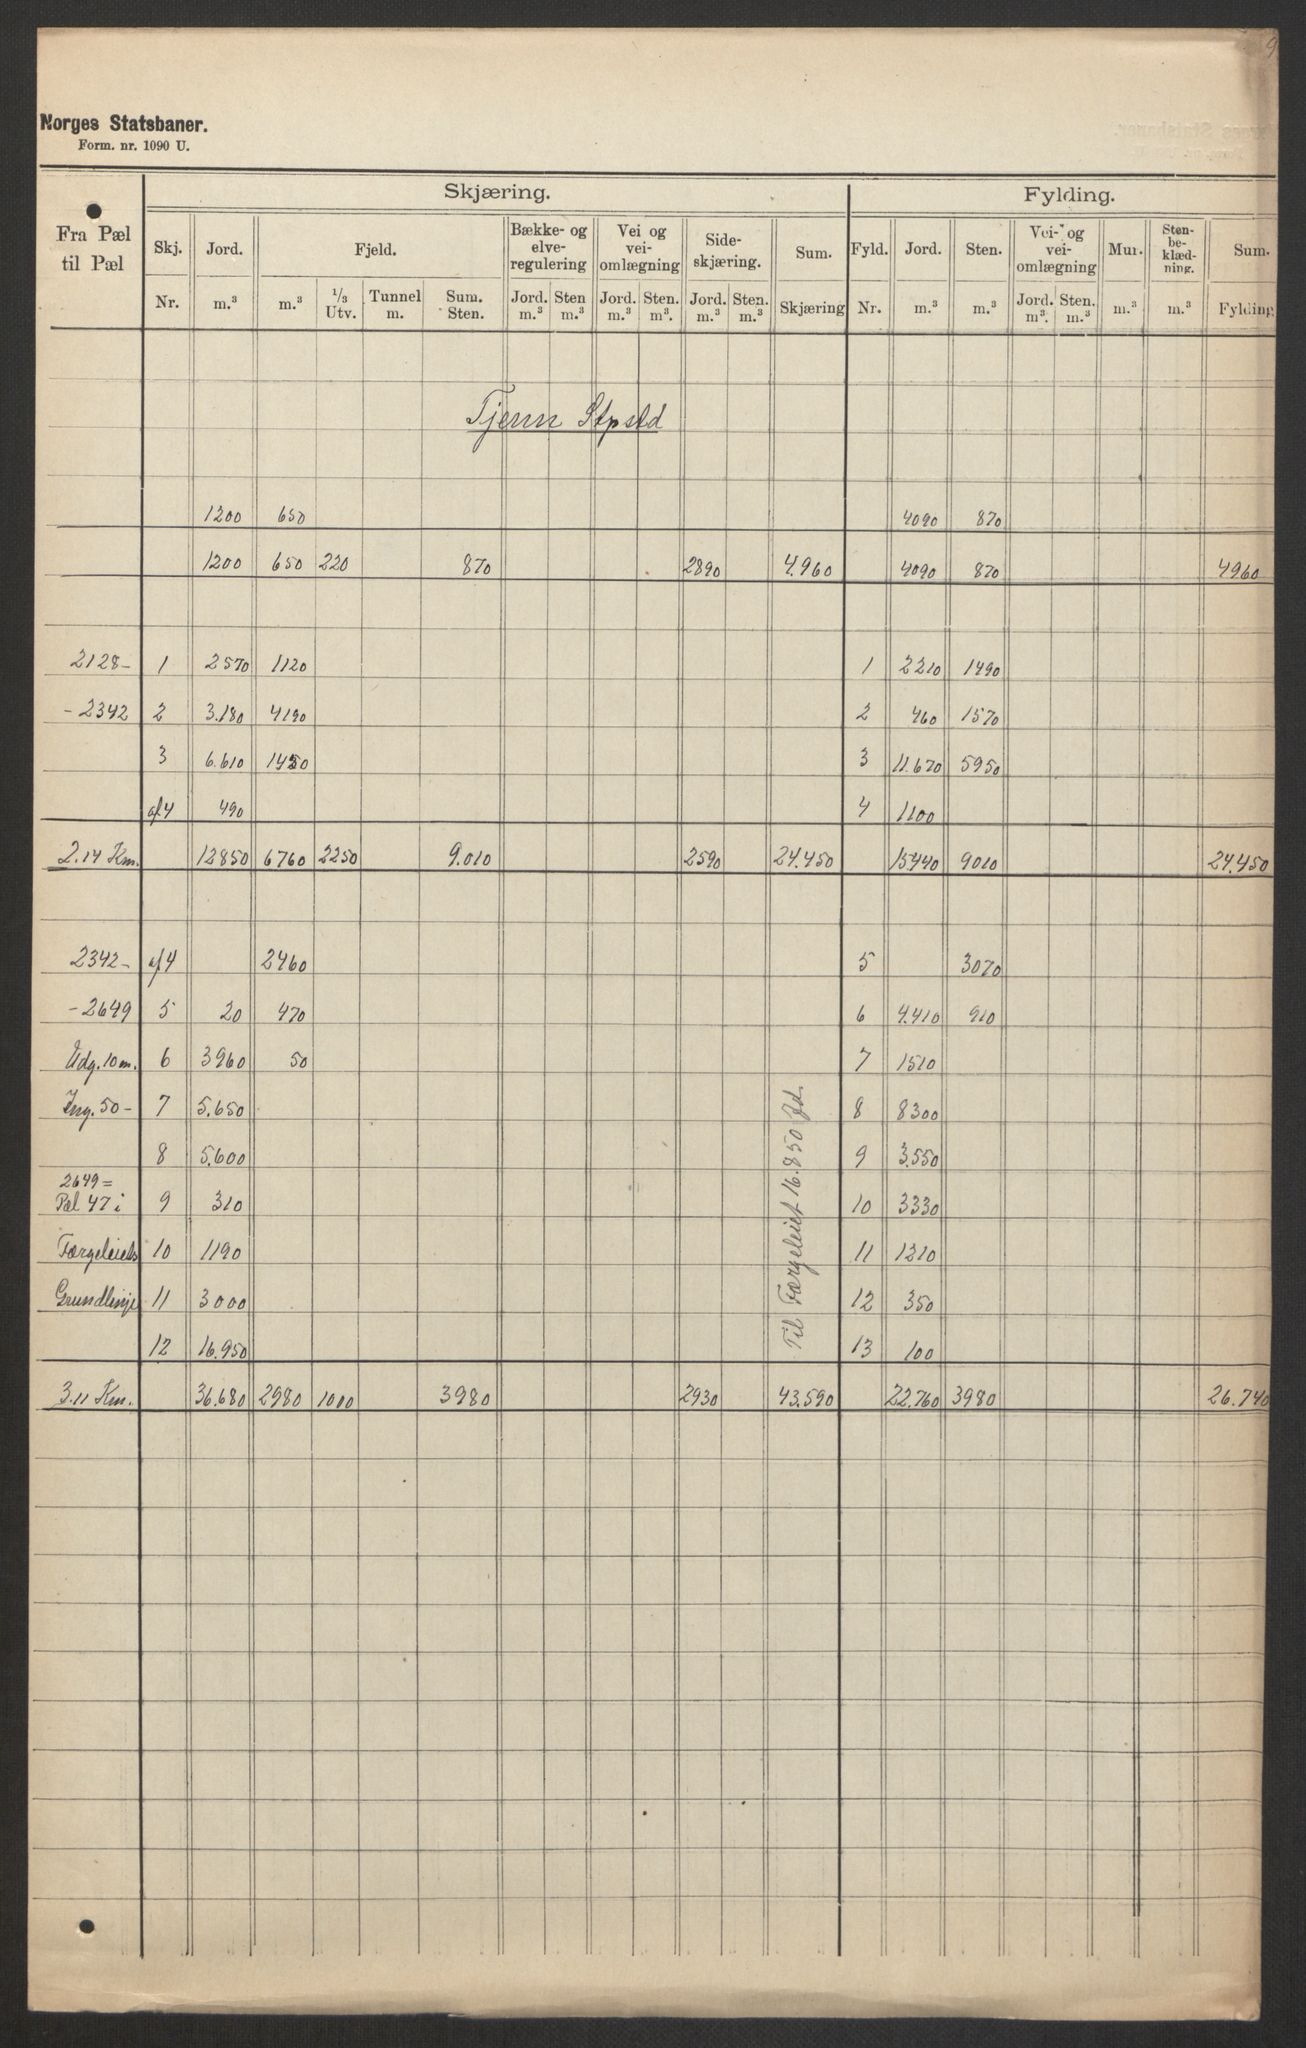 9
Norges Statsbaner.
Form. nr. 1090 U.
Skjæring. Fylding.
Fra Pæl til Pæl Skj. Jord. Fjeld. Bække- og elve-regulering Vei og vei-omlægning Side-skjæring. Sum. Fyld. Jord. Sten. Vei- og vei-omlægning Mur. Sten-be-klæd-ning. Sum.
Nr. m.³ m.³ ⅓ Utv. Tunnel m. Sum. Sten. Jord. m.³ Sten m.³ Jord. m.³ Sten. m.³. Jord. m.³ Sten. m.³ Skjæring Nr. m.³ m.³ Jord. m³. Sten. m.³ m.³ m.³ Fylding
Tjenn Stpsld
1200 650 4090 870
1200 650 220 870 2890 4.960 4090 870 4960
2128- 1 2570 1120 1 2210 1490
-2342 2 3.180 4190 2 460 1570
3 6.610 1450 3 11.670 5950
af 4 490 4 1100
2.14 Km. 12850 6760 2250 9.010 2590 24.450 15440 9010 24.450
2342- af 4 2460 5 3070
-2649 5 20 470 6 4.410 910
Udg. 10 m. 6 3960 50 7 1510
Ing. 50- 7 5.650 8 8300
8 5.600 9 3.550
2649 =
Pæl 47 i 9 310 10 3330
Færgeleiets 10 1190 11 1210
Grundlinje 11 3000 12 350
12 16.950 13 100
Til Færgeleiet 16.850 Jd.
3.11 Km. 36.680 2980 1000 3980 2930 43.590 22.760 3980 26.740